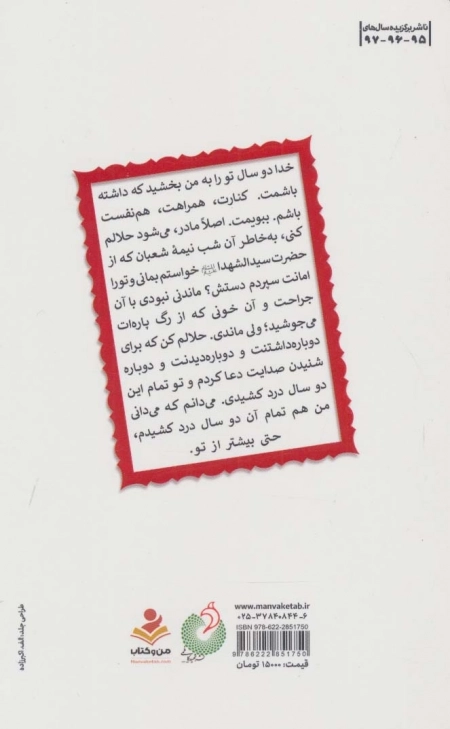 ناشر برگزیده سال‌های
۹۵-۹۶-۹۷
خدا دو سال تو را به من بخشید که داشته
باشمت. کنارت، همراهت، هم‌نفست
باشم. ببویمت. اصلاً مادر، می‌شود حلالم
کنی، به‌خاطر آن شب نیمهٔ شعبان که از
حضرت سیدالشهدا خواستم بمانی و تو را
امانت سپردم دستش؟ ماندنی نبودی با آن
جراحت و آن خونی که از رگ پاره‌ات
می‌جوشید؛ ولی ماندی. حلالم کن که برای
دوباره‌داشتنت و دوباره‌دیدنت و دوباره
شنیدن صدایت دعا کردم و تو تمام این
دو سال درد کشیدی. می‌دانم که می‌دانی
من هم تمام آن دو سال درد کشیدم،
حتی بیشتر از تو.
طراحی جلد: الف. اکبرزاده
من و کتاب
Manvaketab.com
www.manvaketab.ir
۰۲۵-۳۷۸۴۰۸۴۴-۶
ISBN 978-622-2851750
9 786222 851750
قیمت: ۱۵۰۰۰ تومان